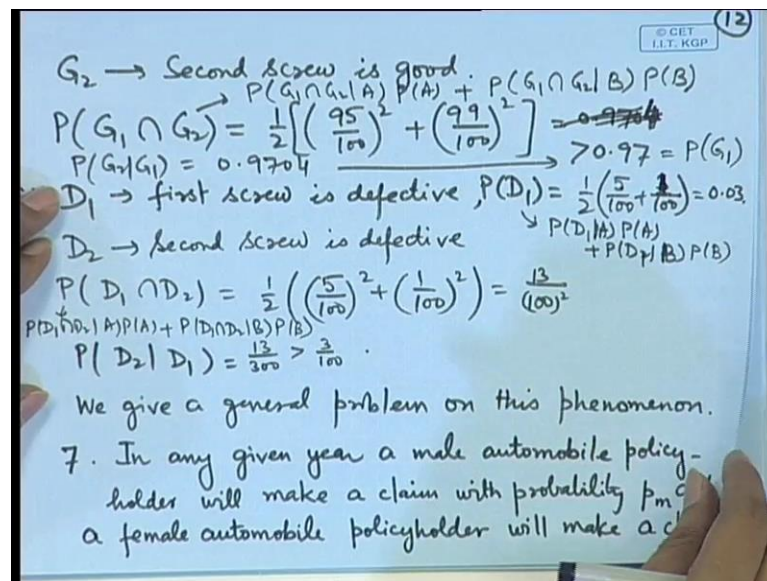 12
© CET
I.I.T. KGP
G₂ → Second screw is good.
P(G₁∩G₂|A) P(A) + P(G₁∩G₂|B) P(B)
P(G₁ ∩ G₂) = 1/2 [(95/100)² + (99/100)²] =
P(G₂|G₁) = 0.9704 → > 0.97 = P(G₁)
D₁ → first screw is defective, P(D₁) = 1/2 (5/100 + 1/100) = 0.03.
P(D₁|A) P(A)
+ P(D₁|B) P(B)
D₂ → Second screw is defective
P(D₁ ∩ D₂) = 1/2 ((5/100)² + (1/100)²) = 13/(100)²
P(D₁∩D₂|A)P(A) + P(D₁∩D₂|B)P(B)
P(D₂|D₁) = 13/300 > 3/100.
We give a general problem on this phenomenon.
7. In any given year a male automobile policy-
holder will make a claim with probability pₘ
a female automobile policyholder will make a